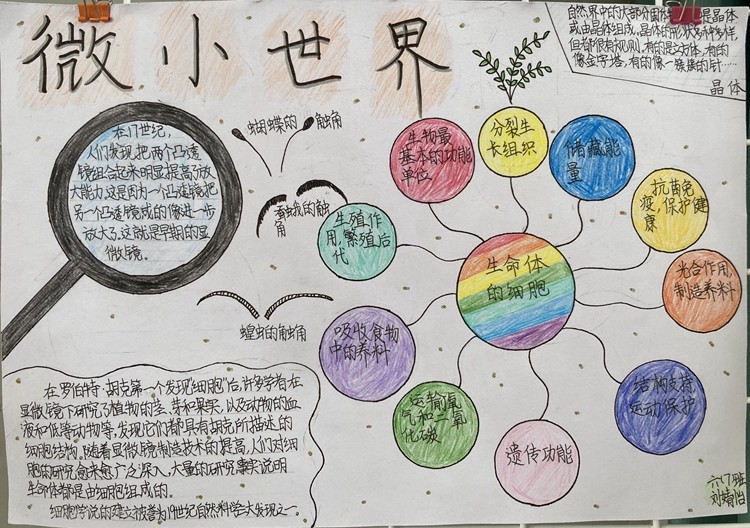 微小世界
自然界中的大部分固体都是晶体
或由晶体组成，晶体的形状多种多样，
但都很有规则，有的是立方体，有的
像金字塔，有的像一簇簇的针……
晶体
在17世纪，
人们发现把两个凸透
镜组合起来明显提高了放
大能力，这是因为一个凸透镜把
另一个凸透镜成的像进一步
放大了，这就是早期的显
微镜。
蝴蝶的触角
蚕蛾的触
角
蝗虫的触角
生物最
基本的功能
单位
分裂生
长组织
储藏能
量
抗菌免
疫，保护健
康
光合作用，
制造养料
结构支持
运动保护
遗传功能
运输氧
气和二氧
化碳
吸收食物
中的养料
生殖作
用，繁殖后
代
生命体
的细胞
在罗伯特·胡克第一个发现“细胞”后，许多学者在
显微镜下研究了植物的茎、芽和果实，以及动物的血
液和低等动物等，发现它们都具有胡克所描述的
细胞结构。随着显微镜制造技术的提高，人们对细
胞的研究愈来愈广泛深入，大量的研究事实说明
生命体都是由细胞组成的。
细胞学说的建立被誉为19世纪自然科学三大发现之一。
六（7）班